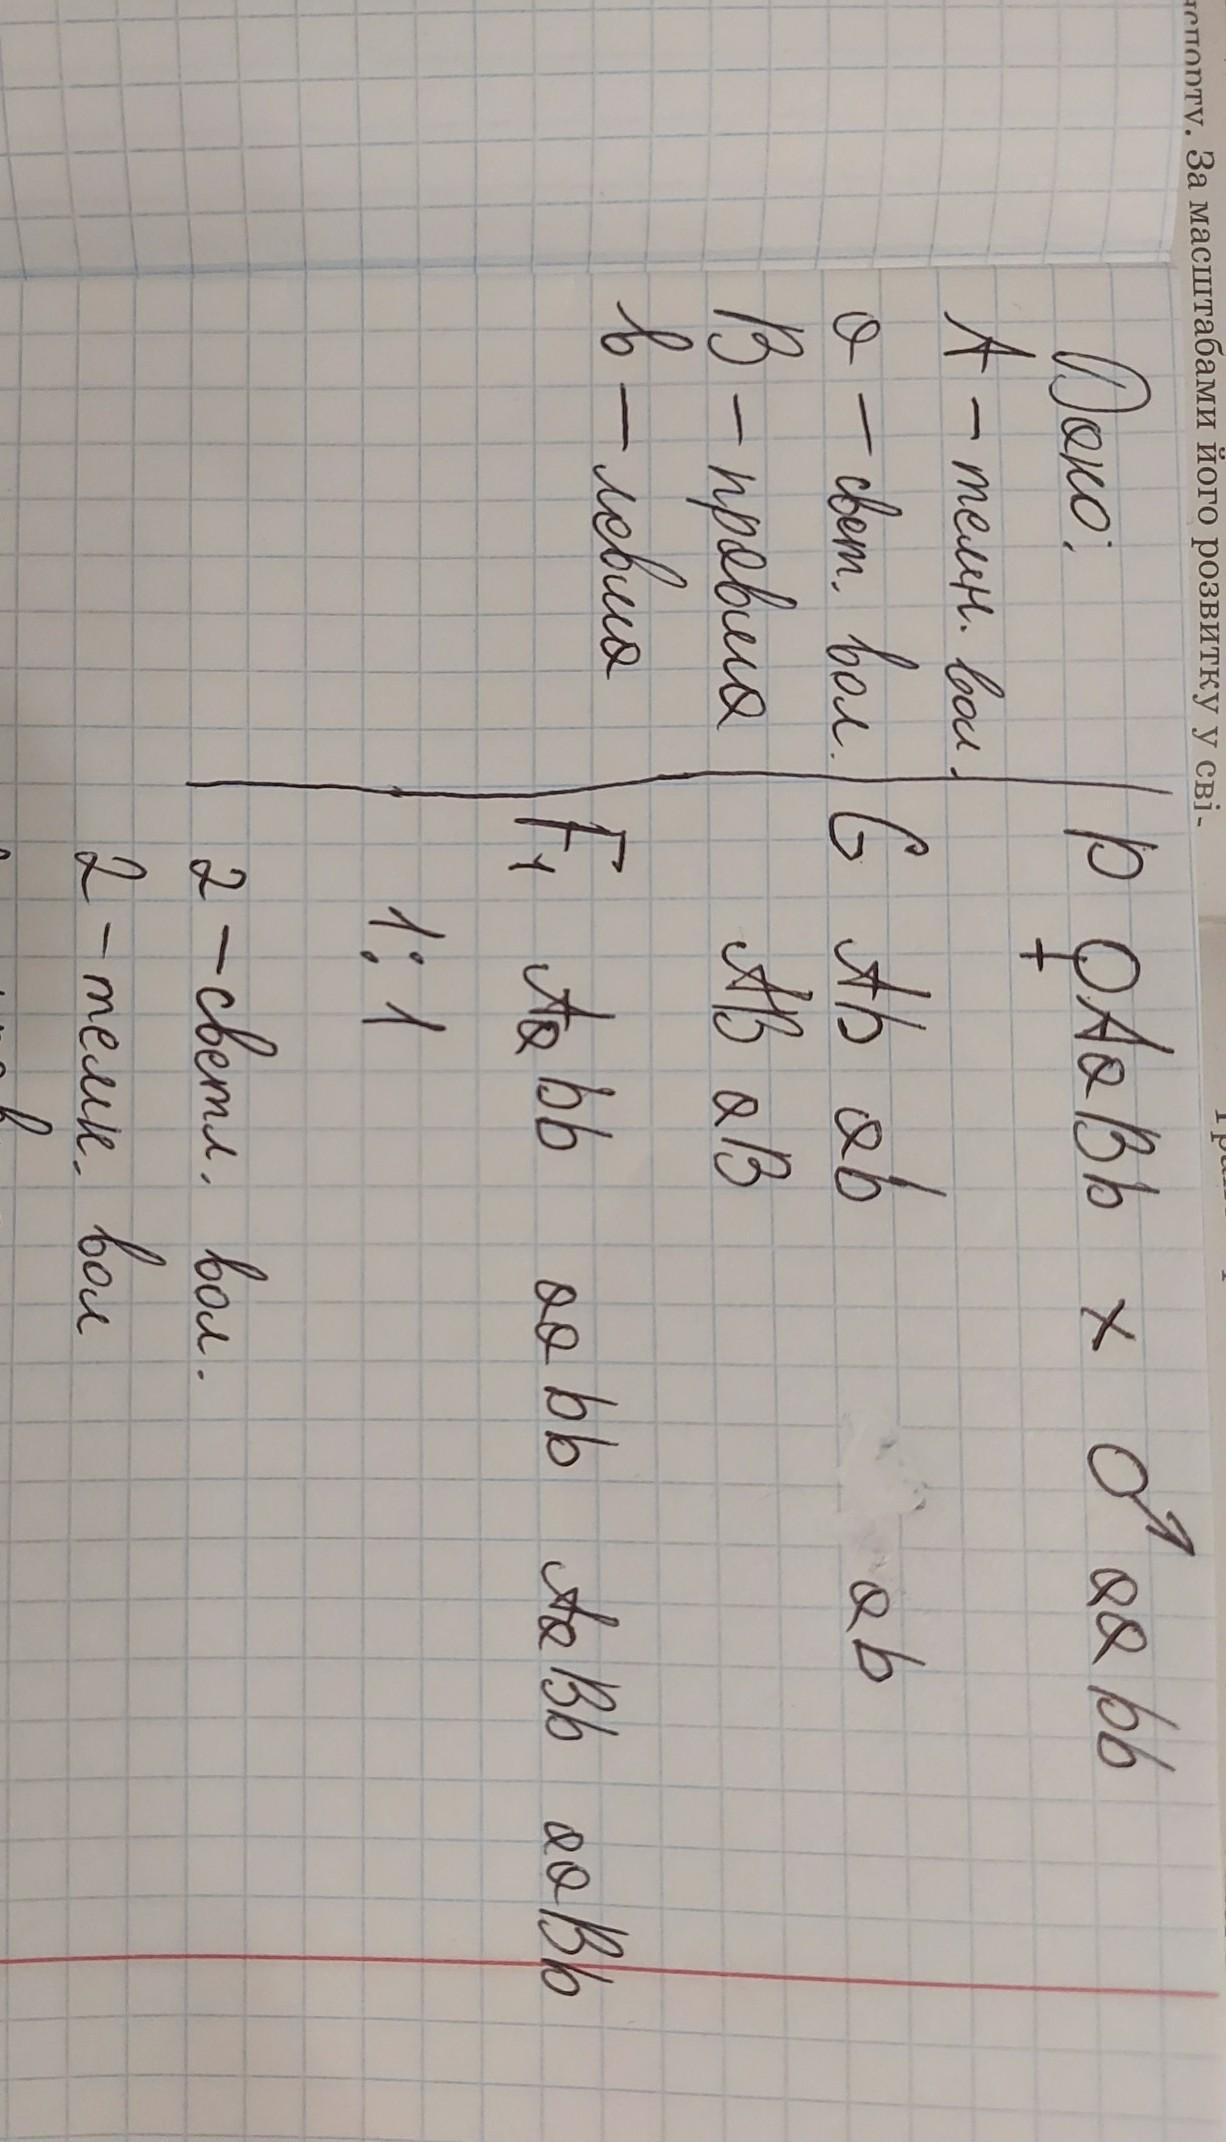 нспорту. За масштабами його розвитку у сві-
Дано:
А - темн. вол.
а - свет. вол.
В - правша
в - левша
P ♀AaBb x ♂ aabb
G Ab ab ab
AB aB
F1 Aabb aabb AaBb aaBb
1:1
2 - светл. вол.
2 - темн. вол